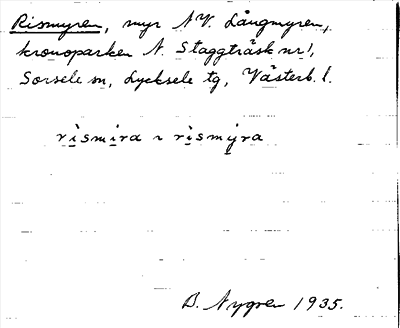 Rismyren, myr N.V. Långmyren,
kronoparken N. Staggträsk nr 1,
Sorsele sn, Lycksele tg, Västerb. l.
rìsmira ~ rìsmyra
B. Nygren 1935.